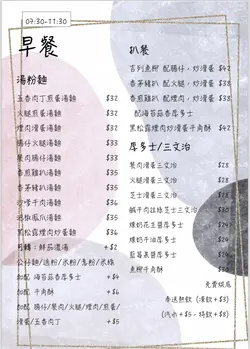 07:30-11:30
早餐
湯粉麵
五香肉丁煎蛋湯麵 $32
火腿煎蛋湯麵 $32
煙肉滑蛋湯麵 $32
腸仔火腿湯麵 $33
餐肉腸仔湯麵 $33
香煎雞扒湯麵 $35
香茅豬扒湯麵 $35
沙嗲牛肉湯麵 $34
湯麵 $35
黑松露炒滑蛋湯麵 $34
鮮茄濃湯 +$2
公仔麵/通粉/米粉/意粉/米線
加配 海苔蒜香厚多士 +$6
加配 牛角酥 +$6
加配 腸仔/餐肉/火腿/煙肉/煎蛋/
滑蛋/五香肉丁 +$5
扒餐
吉列魚柳 配腸仔，炒滑蛋 $42
香茅豬扒 配火腿，炒滑蛋 $42
香煎雞扒 配煙肉，炒滑蛋 $38
配海苔蒜香厚多士
黑松露煙肉炒滑蛋牛角酥 $42
厚多士/三文治
餐肉滑蛋三文治 $28
火腿滑蛋三文治 $28
鹹牛肉芝士三文治 $30
煉奶花生醬厚多士 $28
煉奶牛油厚多士
藍莓醬厚多士
魚柳牛角酥
免費烘底
奉送熱飲 (凍飲+$3)
+$5 · 特飲+$8)